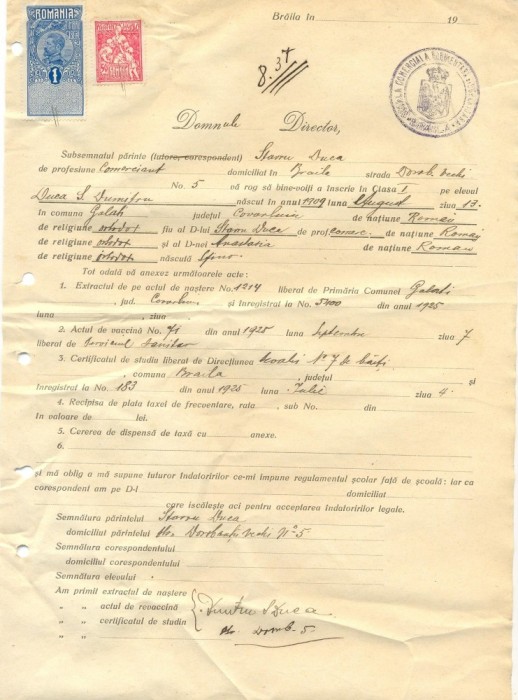 Brăila în 19
ROMANIA
1
8.37
ȘCOALA COMERCIALĂ ELEMENTARĂ
BRĂILA
Domnule Director,
Subsemnatul părinte (tutore, corespondent) Stavru Duca
de profesiune Comerciant domiciliat în Braila strada Dorob. Vechi
No. 5 vă rog să bine-voiți a înscrie în Clasa I pe elevul
Duca S. Dumitru născut în anul 1909 luna August ziua 13
în comuna Galati județul Covurlui de națiune Roman
de religiune ortodox fiu al D-lui Stavru Duca de prof comerc. de națiune Roman
de religiune ortodox și al D-nei Anastasia de națiune Roman
de religiune ortodox născută
Tot odată vă anexez următoarele acte:
1. Extractul de pe actul de naștere No. 1214 liberat de Primăria Comunei Galati
, jud. Covurlui și înregistrat la No. 5400 din anul 1925
luna , ziua
2. Actul de vaccină No. 71 din anul 1925 luna Septembrie ziua 7
liberat de Serviciul Sanitar
3. Certificatul de studiu liberat de Direcțiunea Scoalei No 7 de băeți
, comuna Braila , județul și
înregistrat la No. 183 din anul 1925 luna Iulie ziua 4
4. Recipisa de plata taxei de frecventare, rata , sub No. din
în valoare de lei.
5. Cererea de dispensă de taxă cu anexe.
6.
și mă oblig a mă supune tuturor îndatoririlor ce-mi impune regulamentul școlar față de școală: iar ca
corespondent am pe D-l domiciliat
care iscălește aci pentru acceptarea îndatoririlor legale.
Semnătura părintelui Stavru Duca
domiciliul părintelui Str. Dorobanți vechi No 5
Semnătura corespondentului
domiciliul corespondentului
Semnătura elevului
Am primit extractul de naștere
„ „ actul de revaccină Dumitru S Duca
„ „ certificatul de studiu Str. Dorob. 5.